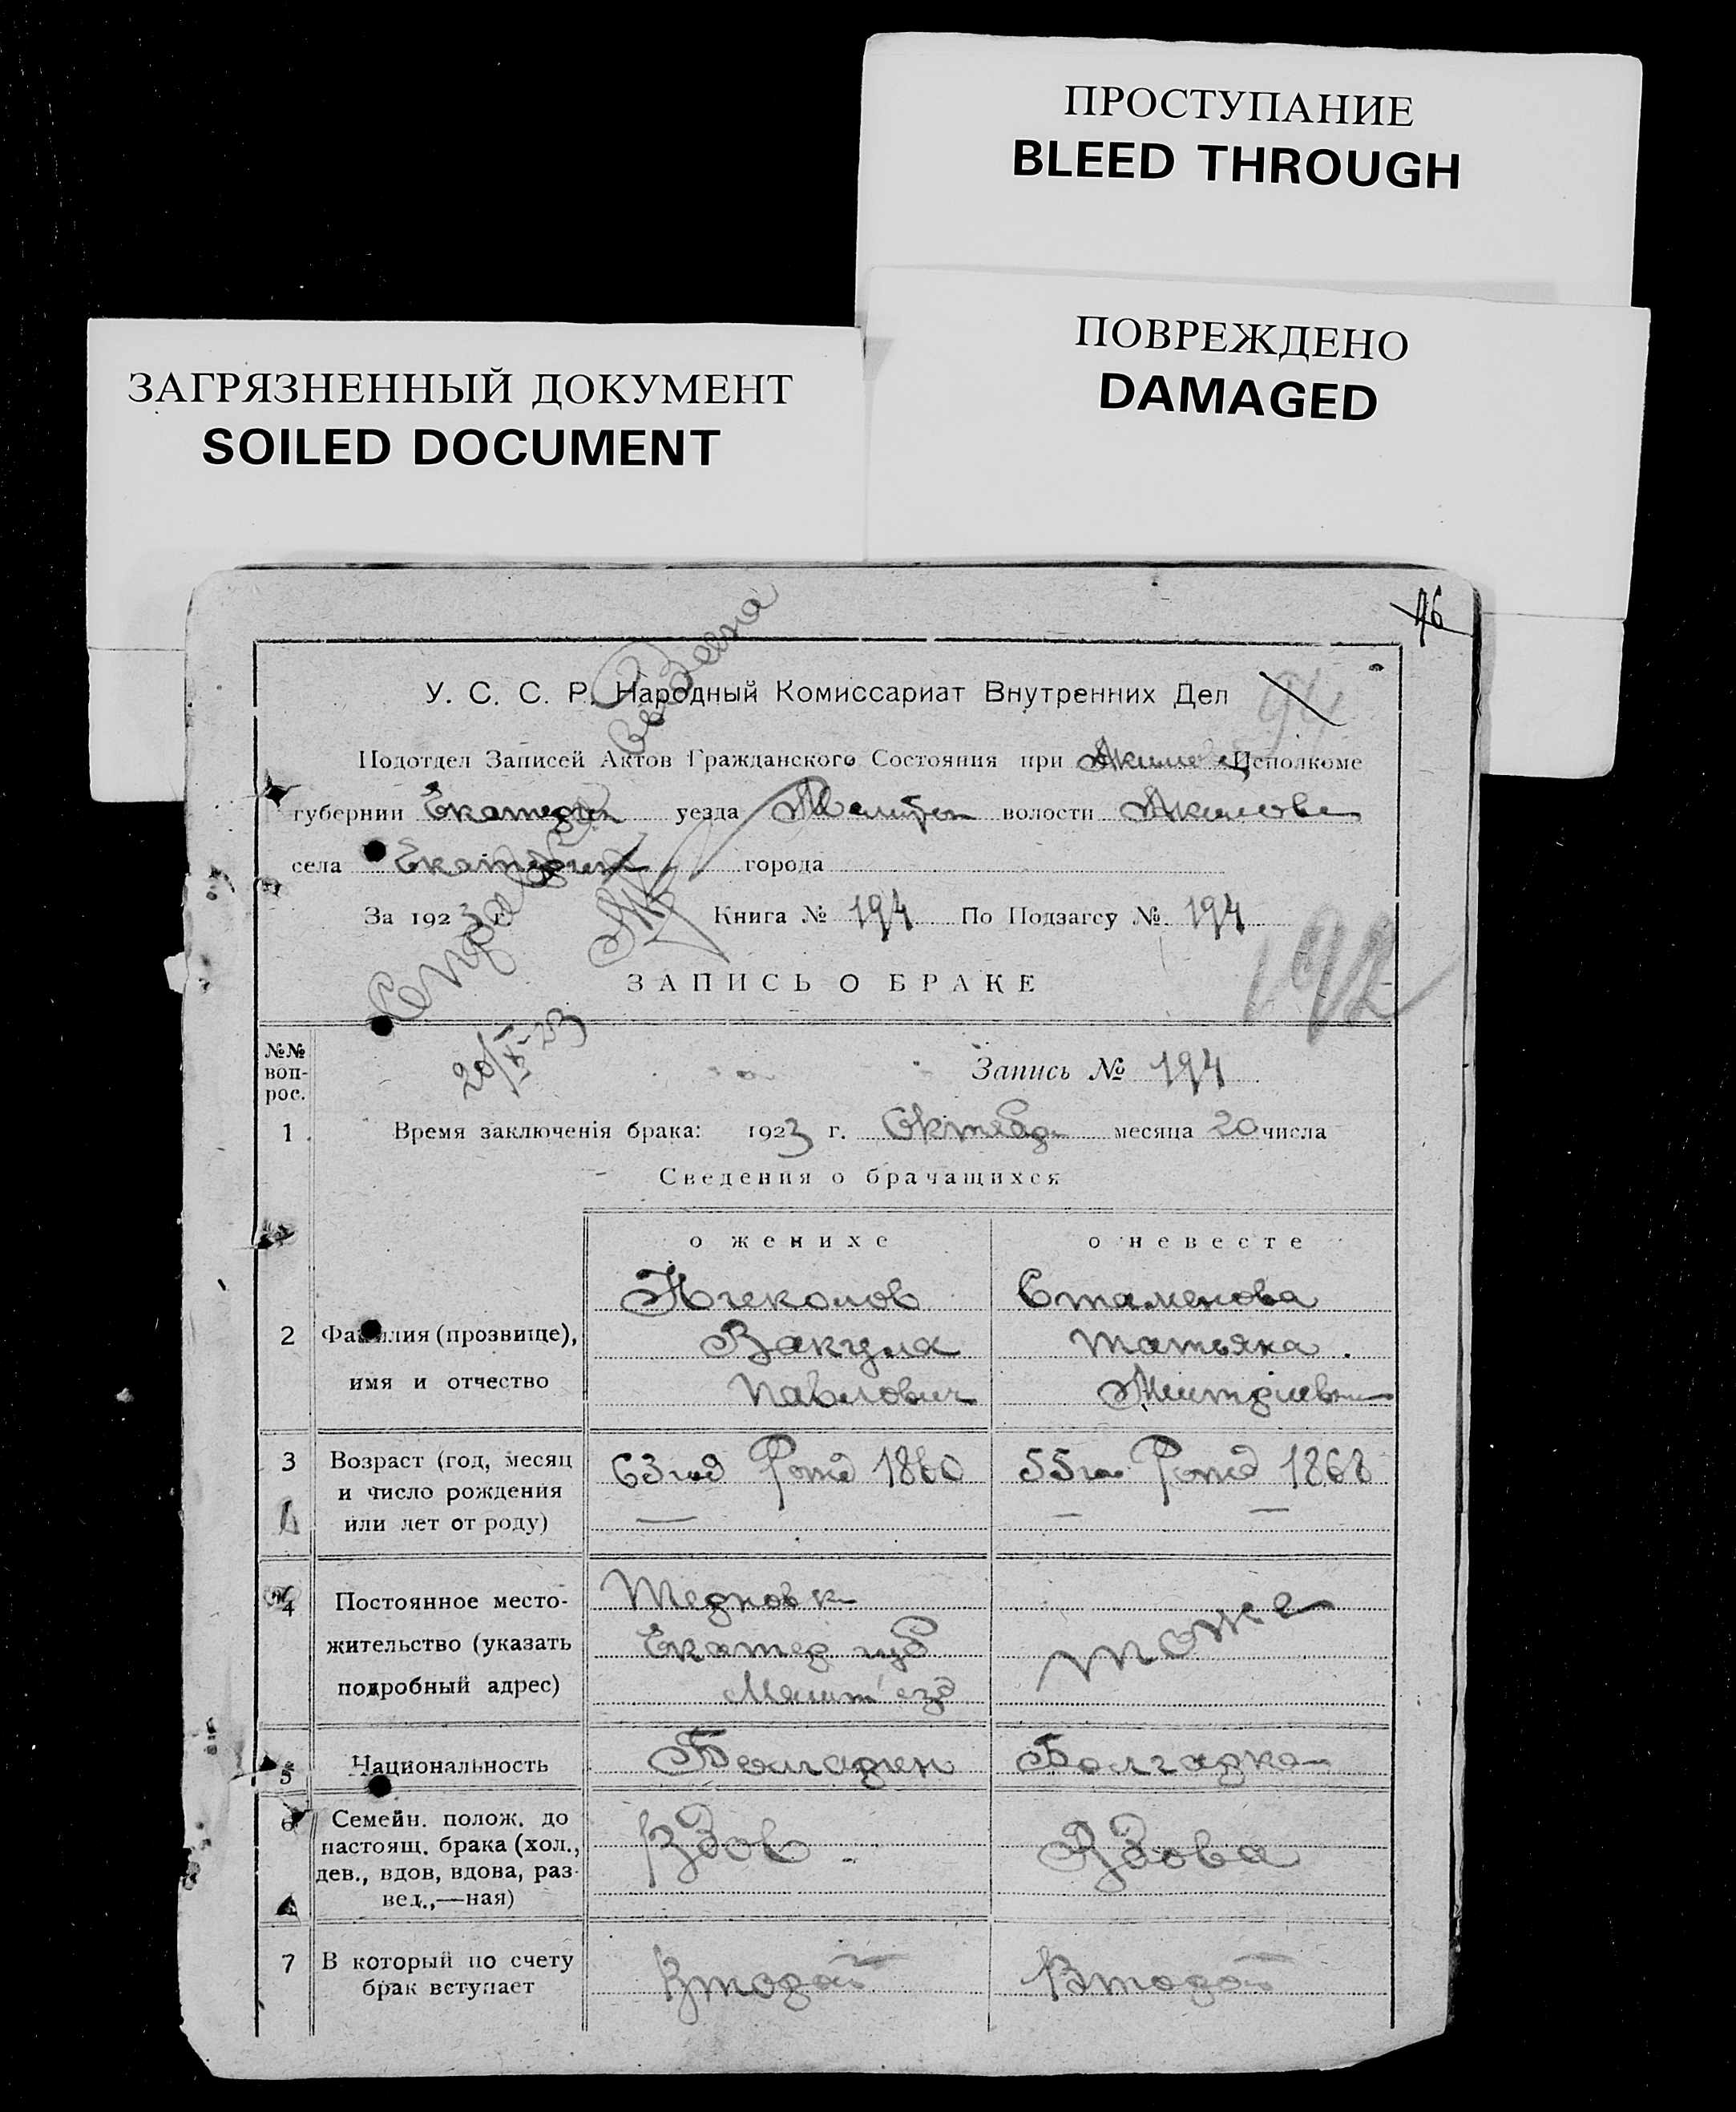 ПРОСТУПАНИЕ
BLEED THROUGH
ПОВРЕЖДЕНО
DAMAGED
ЗАГРЯЗНЕННЫЙ ДОКУМЕНТ
SOILED DOCUMENT
46
У. С. С. Р. Народный Комиссариат Внутренних Дел
94
Подотдел Записей Актов Гражданского Состояния при Акимов Исполкоме
губернии Екатерин уезда Мелитоп волости Акимовс
села города
За 1923 г. Книга № 194 По Подзагсу № 194
Справка
20/X-23
192
ЗАПИСЬ О БРАКЕ
№№ вопрос.
Запись № 194
1 Время заключенiя брака: 1923 г. Октябр месяца 20 числа
Сведения о брачащихся
о женихе о невесте
2 Фамилия (прозвище), имя и отчество
Николов Стаменова
Вакула Татьяна
Павлович Дмитриевн
3 Возраст (год, месяц и число рождения или лет от роду)
63 год Рожд 1860 55 Рожд 1868
4 Постоянное место-
жительство (указать
подробный адрес)
Терновк тоже
Екатер губ
Мелит уезд
5 Национальность Болгарин Болгарка
6 Семейн. полож. до
настоящ. брака (хол.,
дев., вдов, вдова, раз-
вед.,—ная)
Вдов Вдова
7 В который по счету
брак вступает
Второй Второй